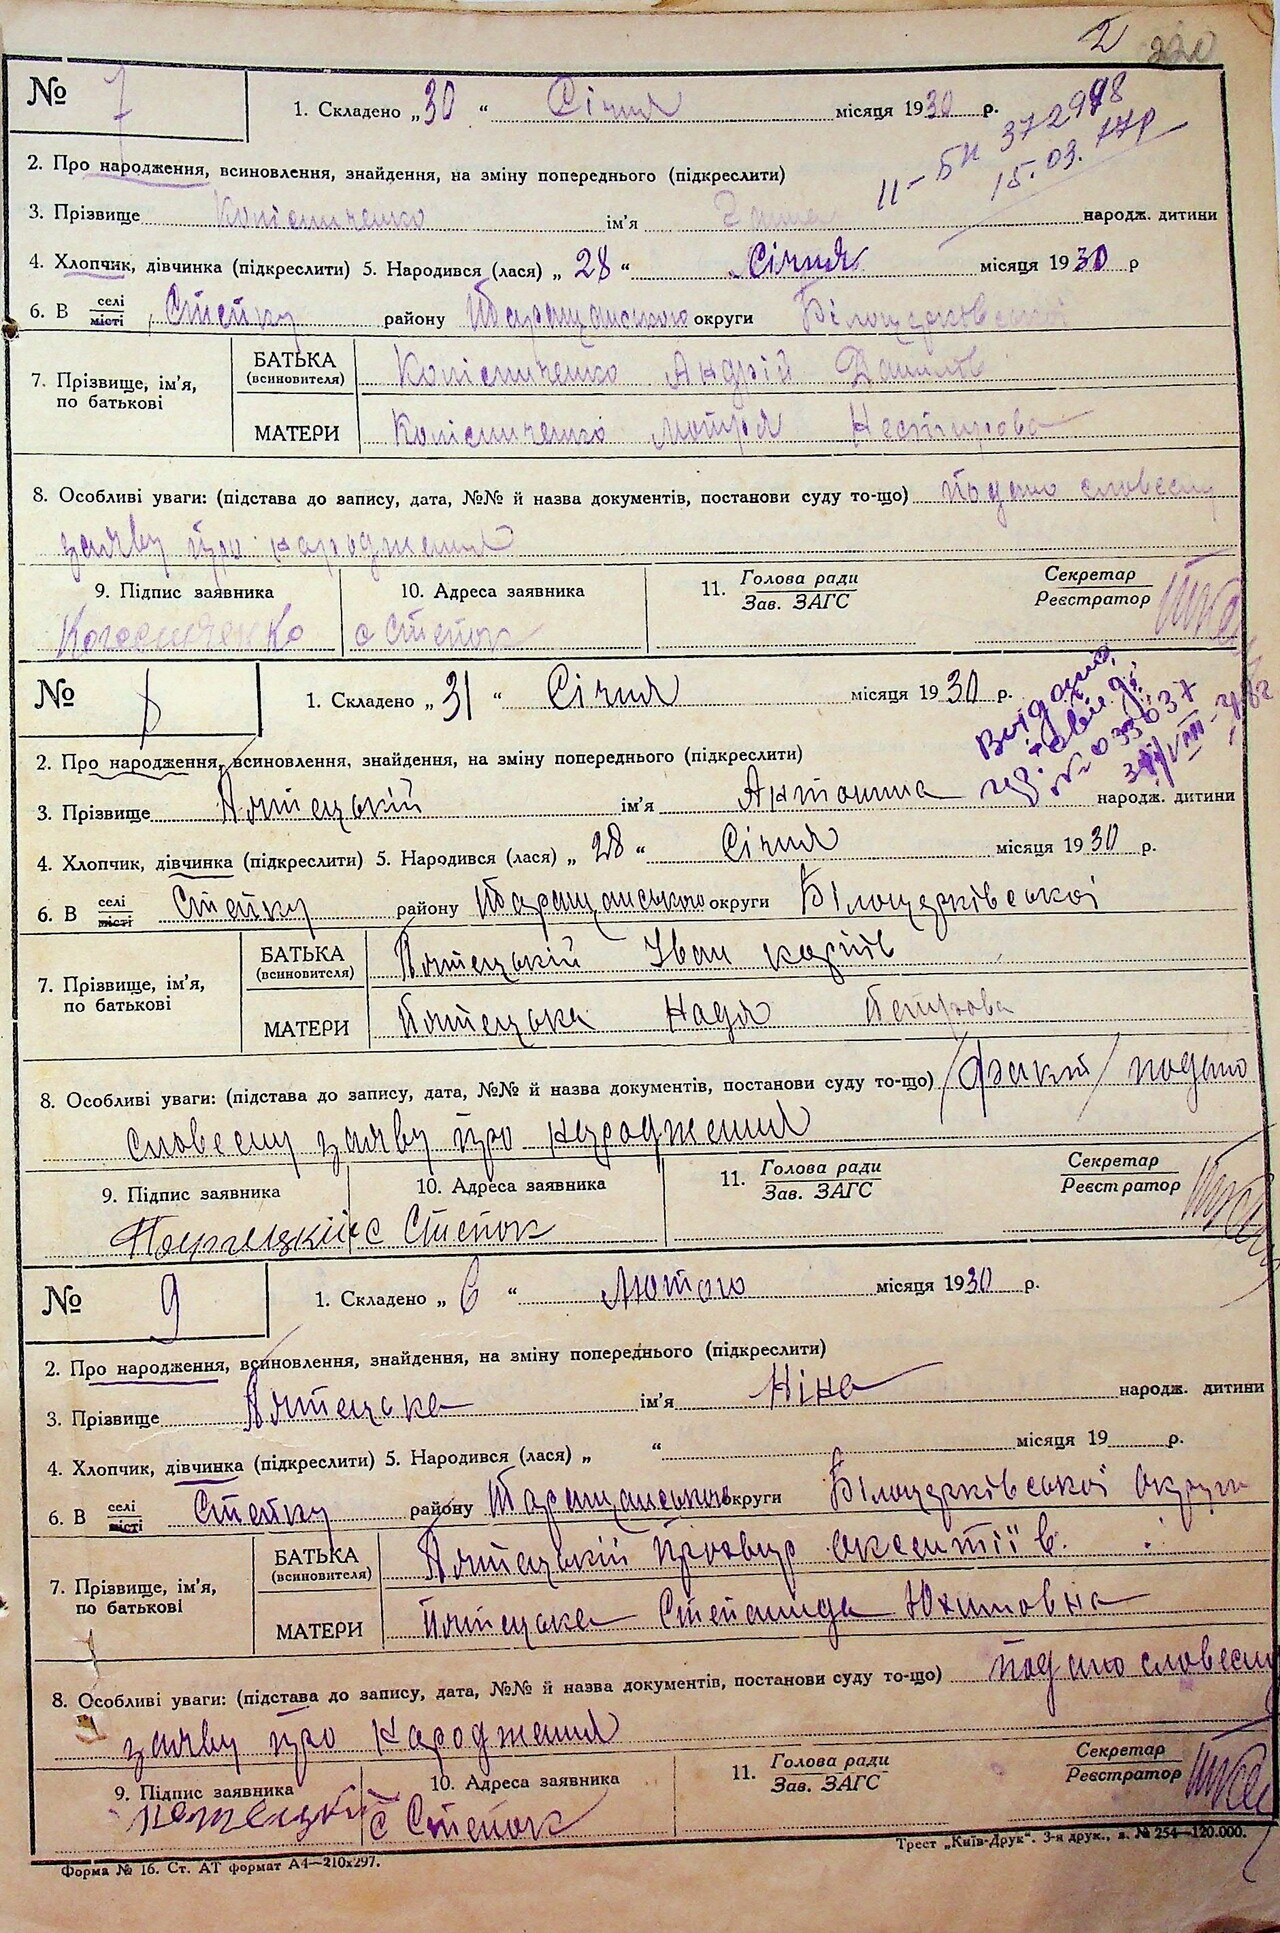 2 220
№ 7
1. Складено „30“ Січня місяця 1930 р.
II-БК 372998
15.03.77р
2. Про народження, всиновлення, знайдення, на зміну попереднього (підкреслити)
3. Прізвище Копісниченко ім'я народж. дитини
4. Хлопчик, дівчинка (підкреслити) 5. Народився (лася) „ 28 “ Січня місяця 1930 р
6. В селі місті Степку району Таращанського округи Білоцерковської
7. Прізвище, ім'я, по батькові
БАТЬКА (всиновителя) Копісниченко Андрій Данилов
МАТЕРИ Копісниченко Мотря Нестирова
8. Особливі уваги: (підстава до запису, дата, №№ й назва документів, постанови суду то-що) подано словесну
заяву про народження
9. Підпис заявника 10. Адреса заявника 11. Голова ради Зав. ЗАГС Секретар Реєстратор
с Степок
№ 8
1. Складено „ 31 “ Січня місяця 1930 р.
Видано
№ 033037
2. Про народження, всиновлення, знайдення, на зміну попереднього (підкреслити)
3. Прізвище Пятецький ім'я Антоніна народж. дитини
4. Хлопчик, дівчинка (підкреслити) 5. Народився (лася) „ 28 “ Січня місяця 1930 р.
6. В селі місті Степку району Таращанського округи Білоцерківської
7. Прізвище, ім'я, по батькові
БАТЬКА (всиновителя) Пятецький Іван карпів
МАТЕРИ Пятецька Надя Петрова
8. Особливі уваги: (підстава до запису, дата, №№ й назва документів, постанови суду то-що) /факт/ подано
словесну заяву про народження
9. Підпис заявника 10. Адреса заявника 11. Голова ради Зав. ЗАГС Секретар Реєстратор
с Степок
№ 9
1. Складено „ 6 “ Лютого місяця 1930 р.
2. Про народження, всиновлення, знайдення, на зміну попереднього (підкреслити)
3. Прізвище Пятецька ім'я Ніна народж. дитини
4. Хлопчик, дівчинка (підкреслити) 5. Народився (лася) „ “ місяця 19 р.
6. В селі місті Степку району Таращанського округи Білоцерківської округи
7. Прізвище, ім'я, по батькові
БАТЬКА (всиновителя) Пятецький Прохвир Оксентіїв.
МАТЕРИ Пятецька Степанида Юхимовна
8. Особливі уваги: (підстава до запису, дата, №№ й назва документів, постанови суду то-що) подано словесну
заяву про народження
9. Підпис заявника 10. Адреса заявника 11. Голова ради Зав. ЗАГС Секретар Реєстратор
с Степок
Форма № 16. Ст. АТ формат А4—210х297.
Трест „Київ-Друк“. 3-я друк., з. № 254—120.000.